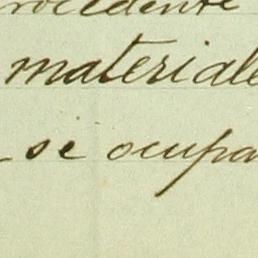 rocedente
materiale
se ocupa